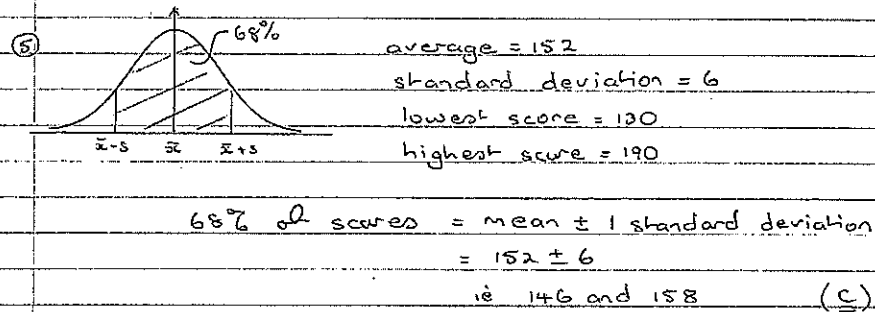 5
68%
x̄-s x̄ x̄+s
average = 152
standard deviation = 6
lowest score = 130
highest score = 190
68% of scores = mean ± 1 standard deviation
= 152 ± 6
ie 146 and 158 (C)